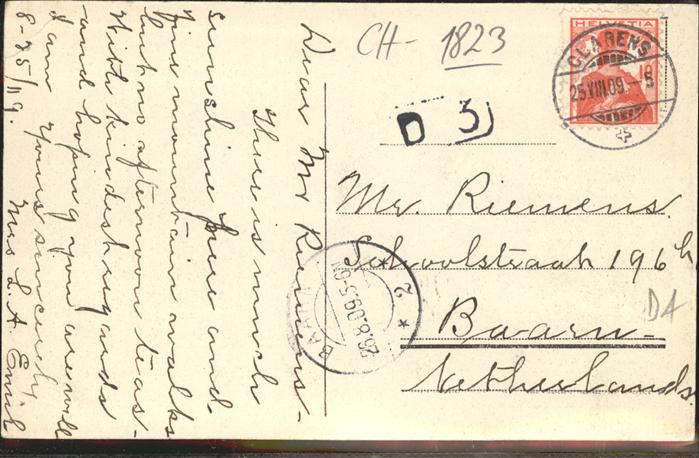 Dear Mr Riemens-
There is much
sunshine here and
fine mountain walks
but no afternoon teas-
With kindest regards
and hoping you are well
I am yours sincerely
Mrs L. A.
8-25/09.
CH- 1823
D 3
HELVETIA
10
CLARENS
25.VIII.09.-5
Mr. Riemens.
Schoolstraat 196 h
Baarn-
Netherlands.
D4
BAARN
26.8.09.5-6N
2